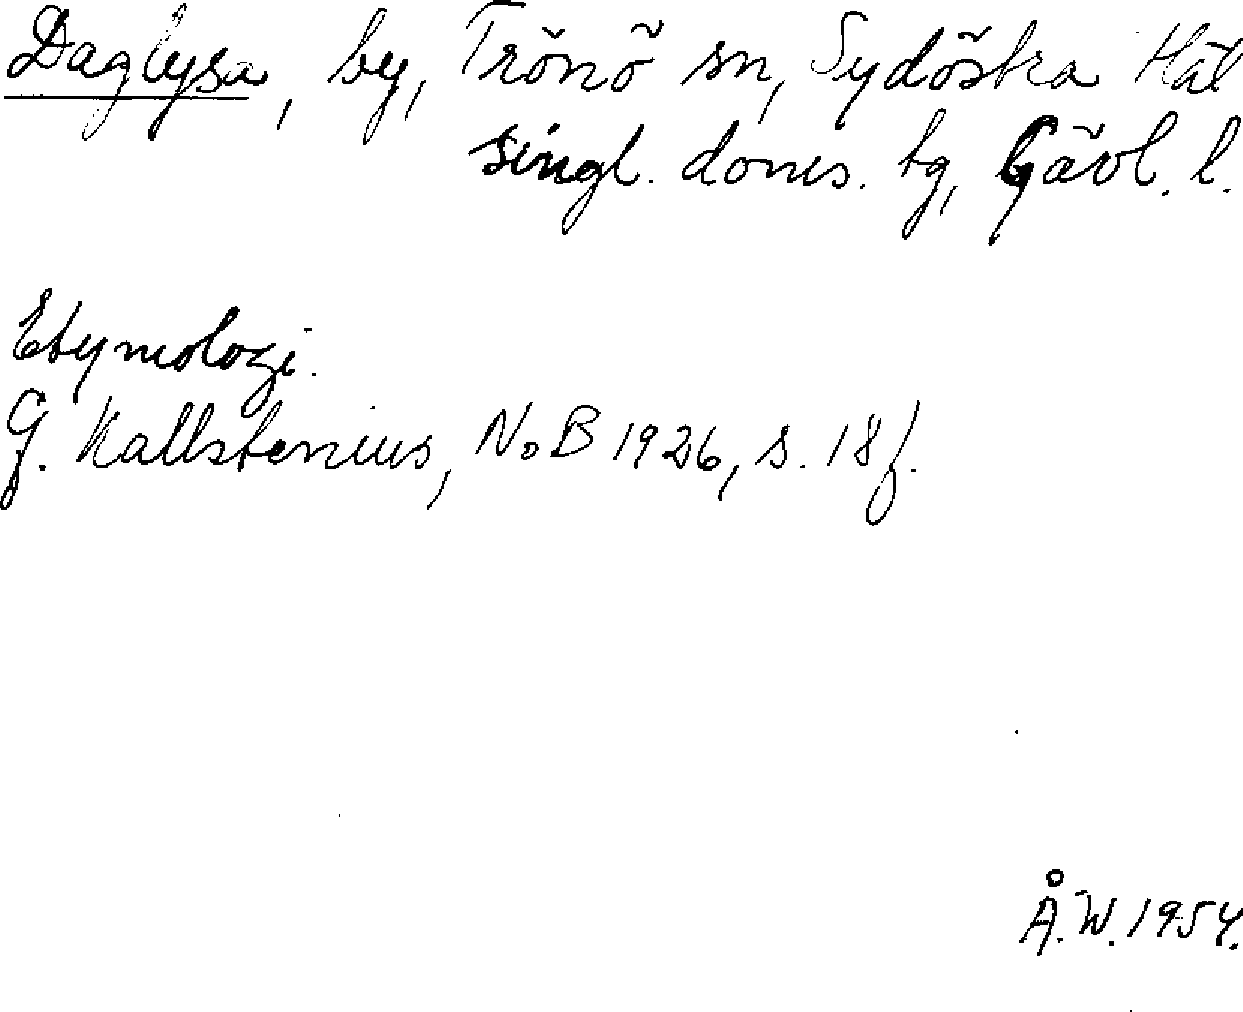 Daglysa, by, Trönö sn, Sydöstra Häl
singl. doms. tg, Gävl. l.
Etymologi.
G. Kallstenius, NoB 1926, s. 18 f.
Å.W. 1954.